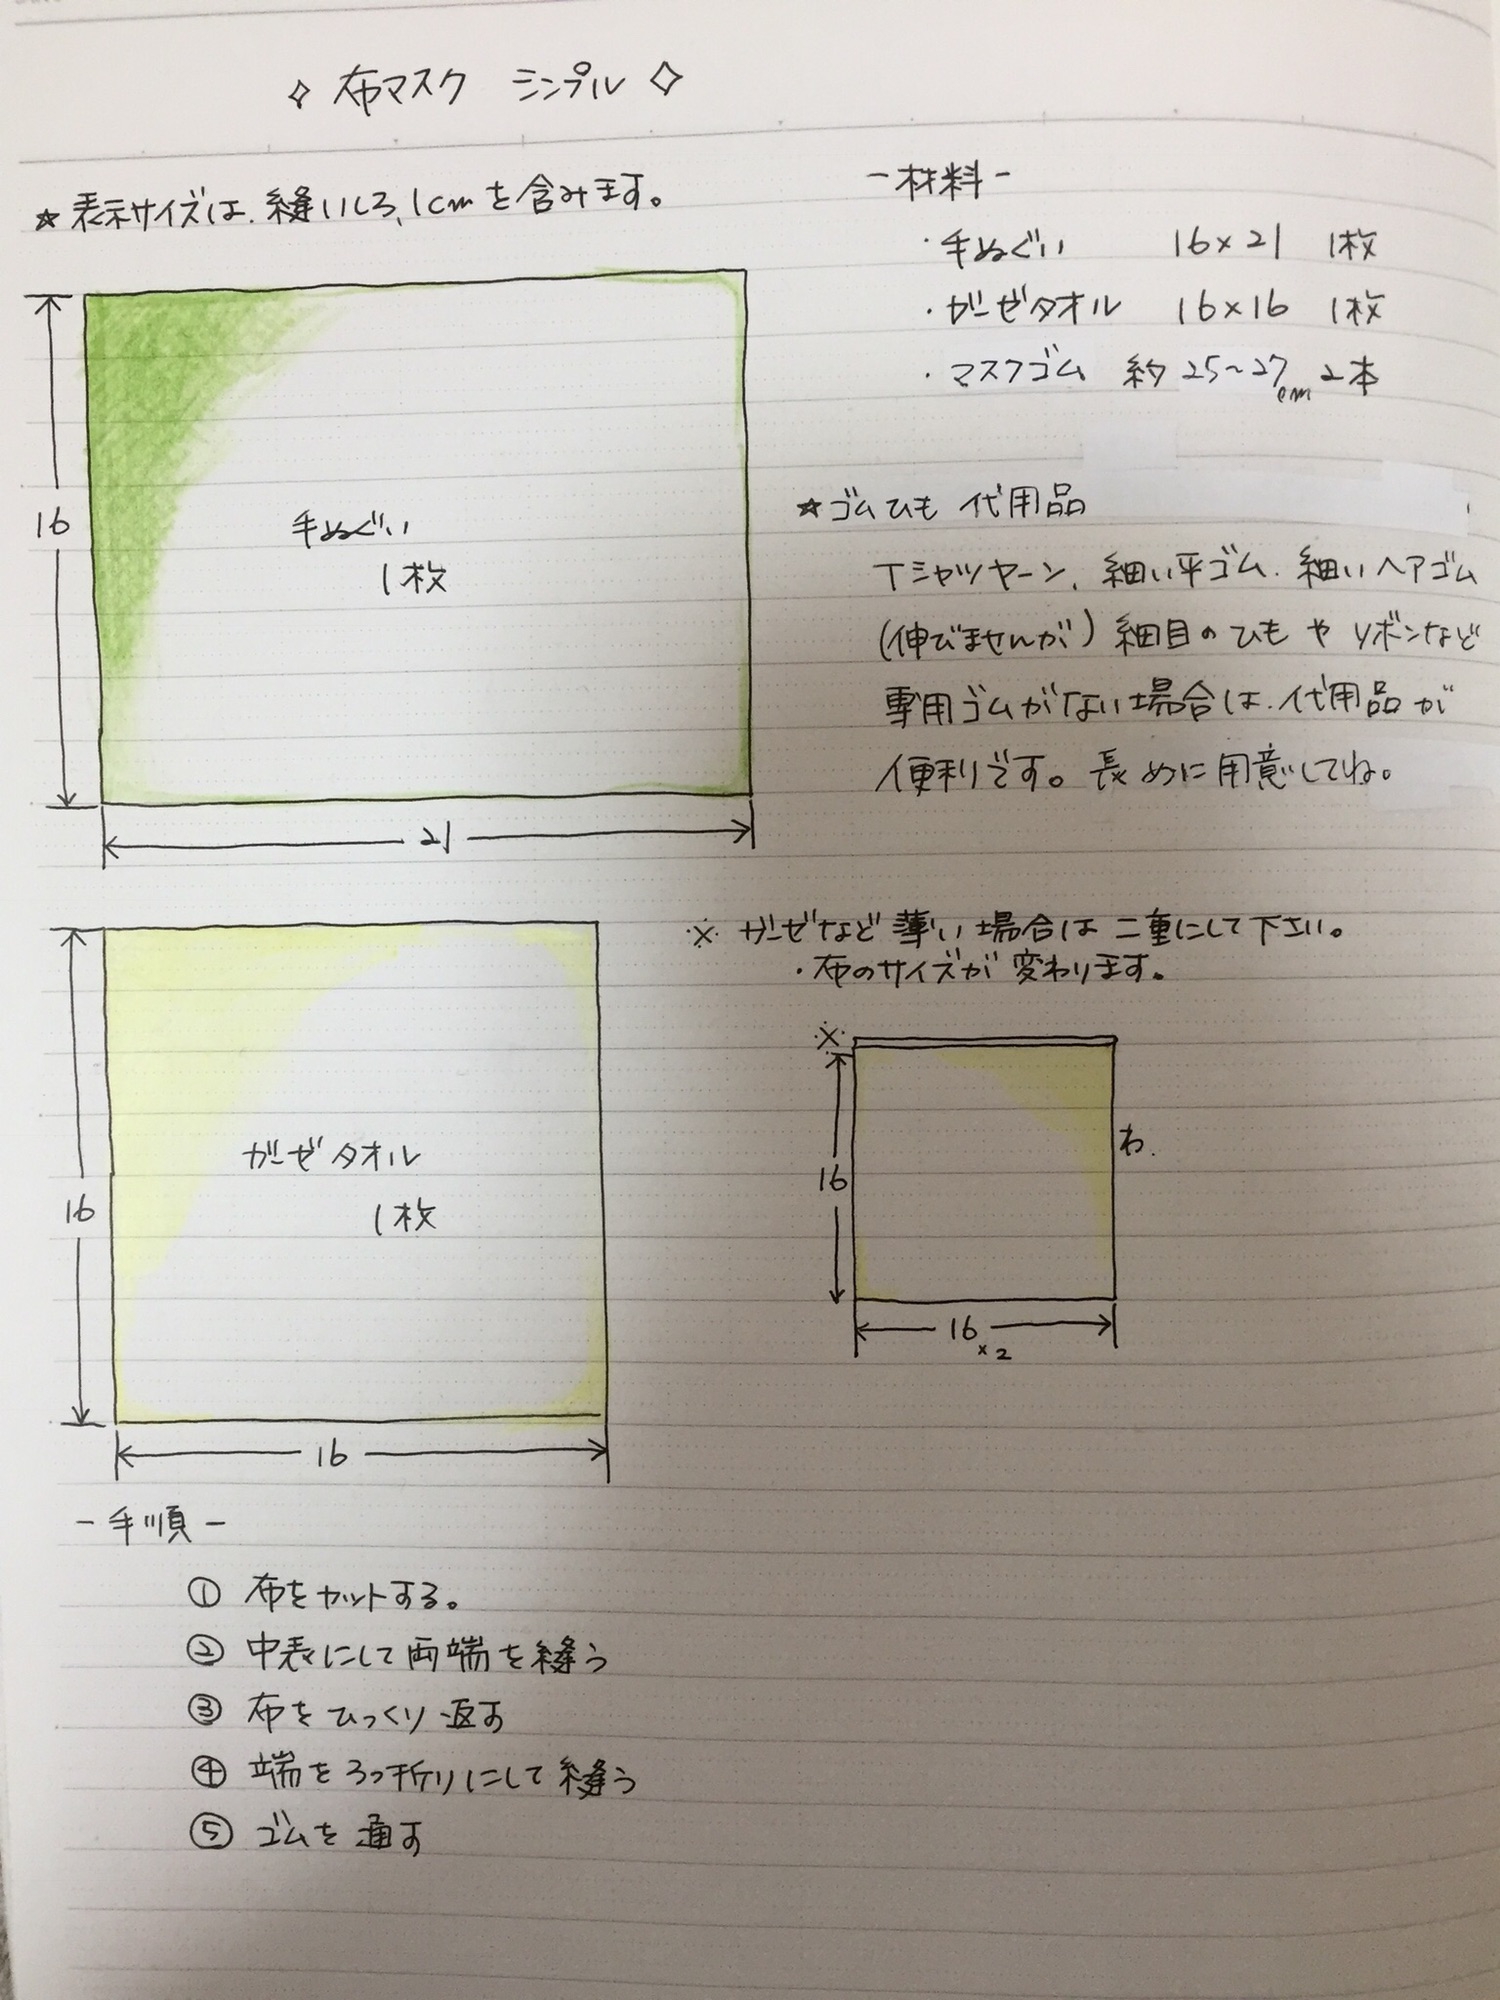 布マスク シンプル
☆表示サイズは、縫いしろ、1cmを含みます。
16
手ぬぐい
1枚
21
-材料-
・手ぬぐい 16×21 1枚
・ガーゼタオル 16×16 1枚
・マスクゴム 約25~27cm 2本
☆ゴムひも 代用品
Tシャツヤーン、細い平ゴム、細いヘアゴム
(伸びませんが)細目のひもやリボンなど
専用ゴムがない場合は、代用品が
便利です。長めに用意してね。
16
ガーゼタオル
1枚
16
※ ガーゼなど薄い場合は二重にして下さい。
・布のサイズが変わります。
※
16
わ.
16×2
-手順-
① 布をカットする。
② 中表にして両端を縫う
③ 布をひっくり返す
④ 端を3つ折りにして縫う
⑤ ゴムを通す